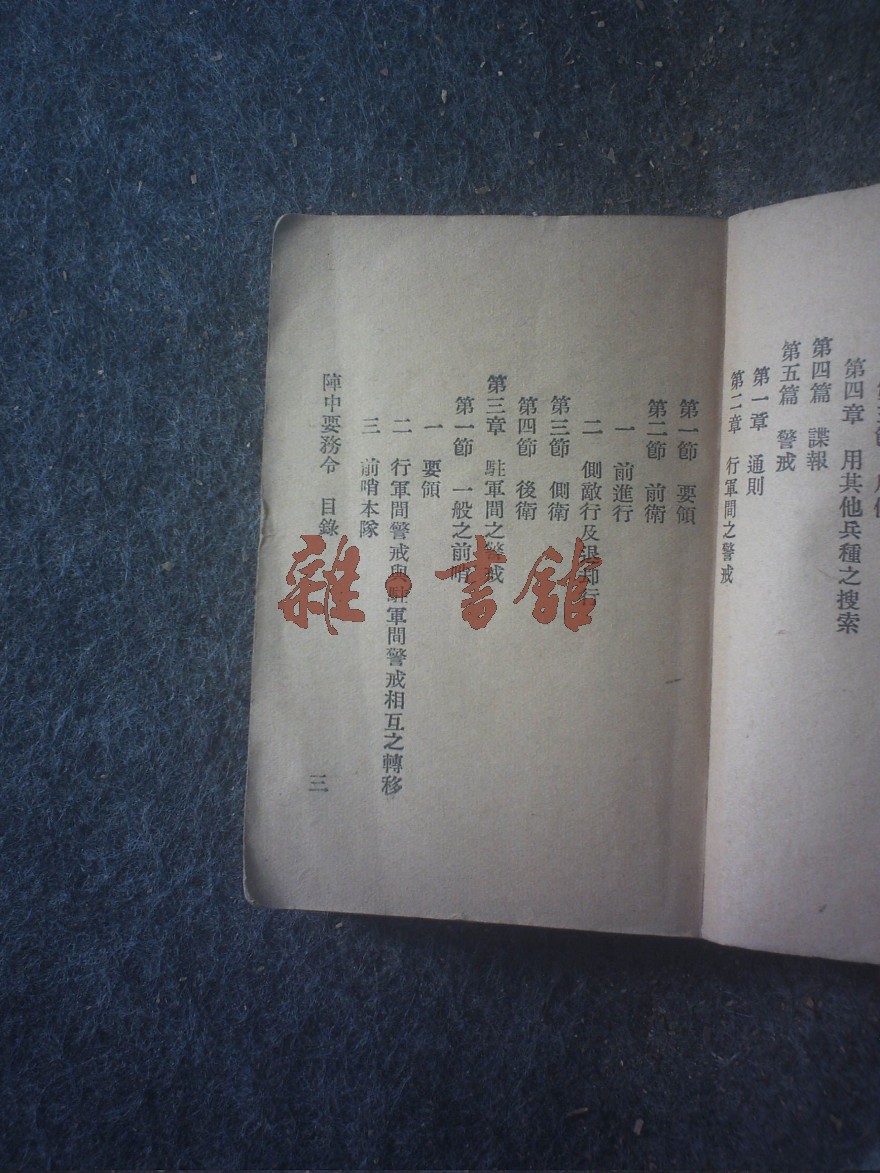 第四章　用其他兵種之搜索
第四篇　諜報
第五篇　警戒
第一章　通則
第二章　行軍間之警戒
第一節　要領
第二節　前衛
一　前進行
二　側敵行及退却行
第三節　側衛
第四節　後衛
第三章　駐軍間之警戒
第一節　一般之前哨
一　要領
二　行軍間警戒與駐軍間警戒相互之轉移
三　前哨本隊
陣中要務令　目錄
三
雜·書館